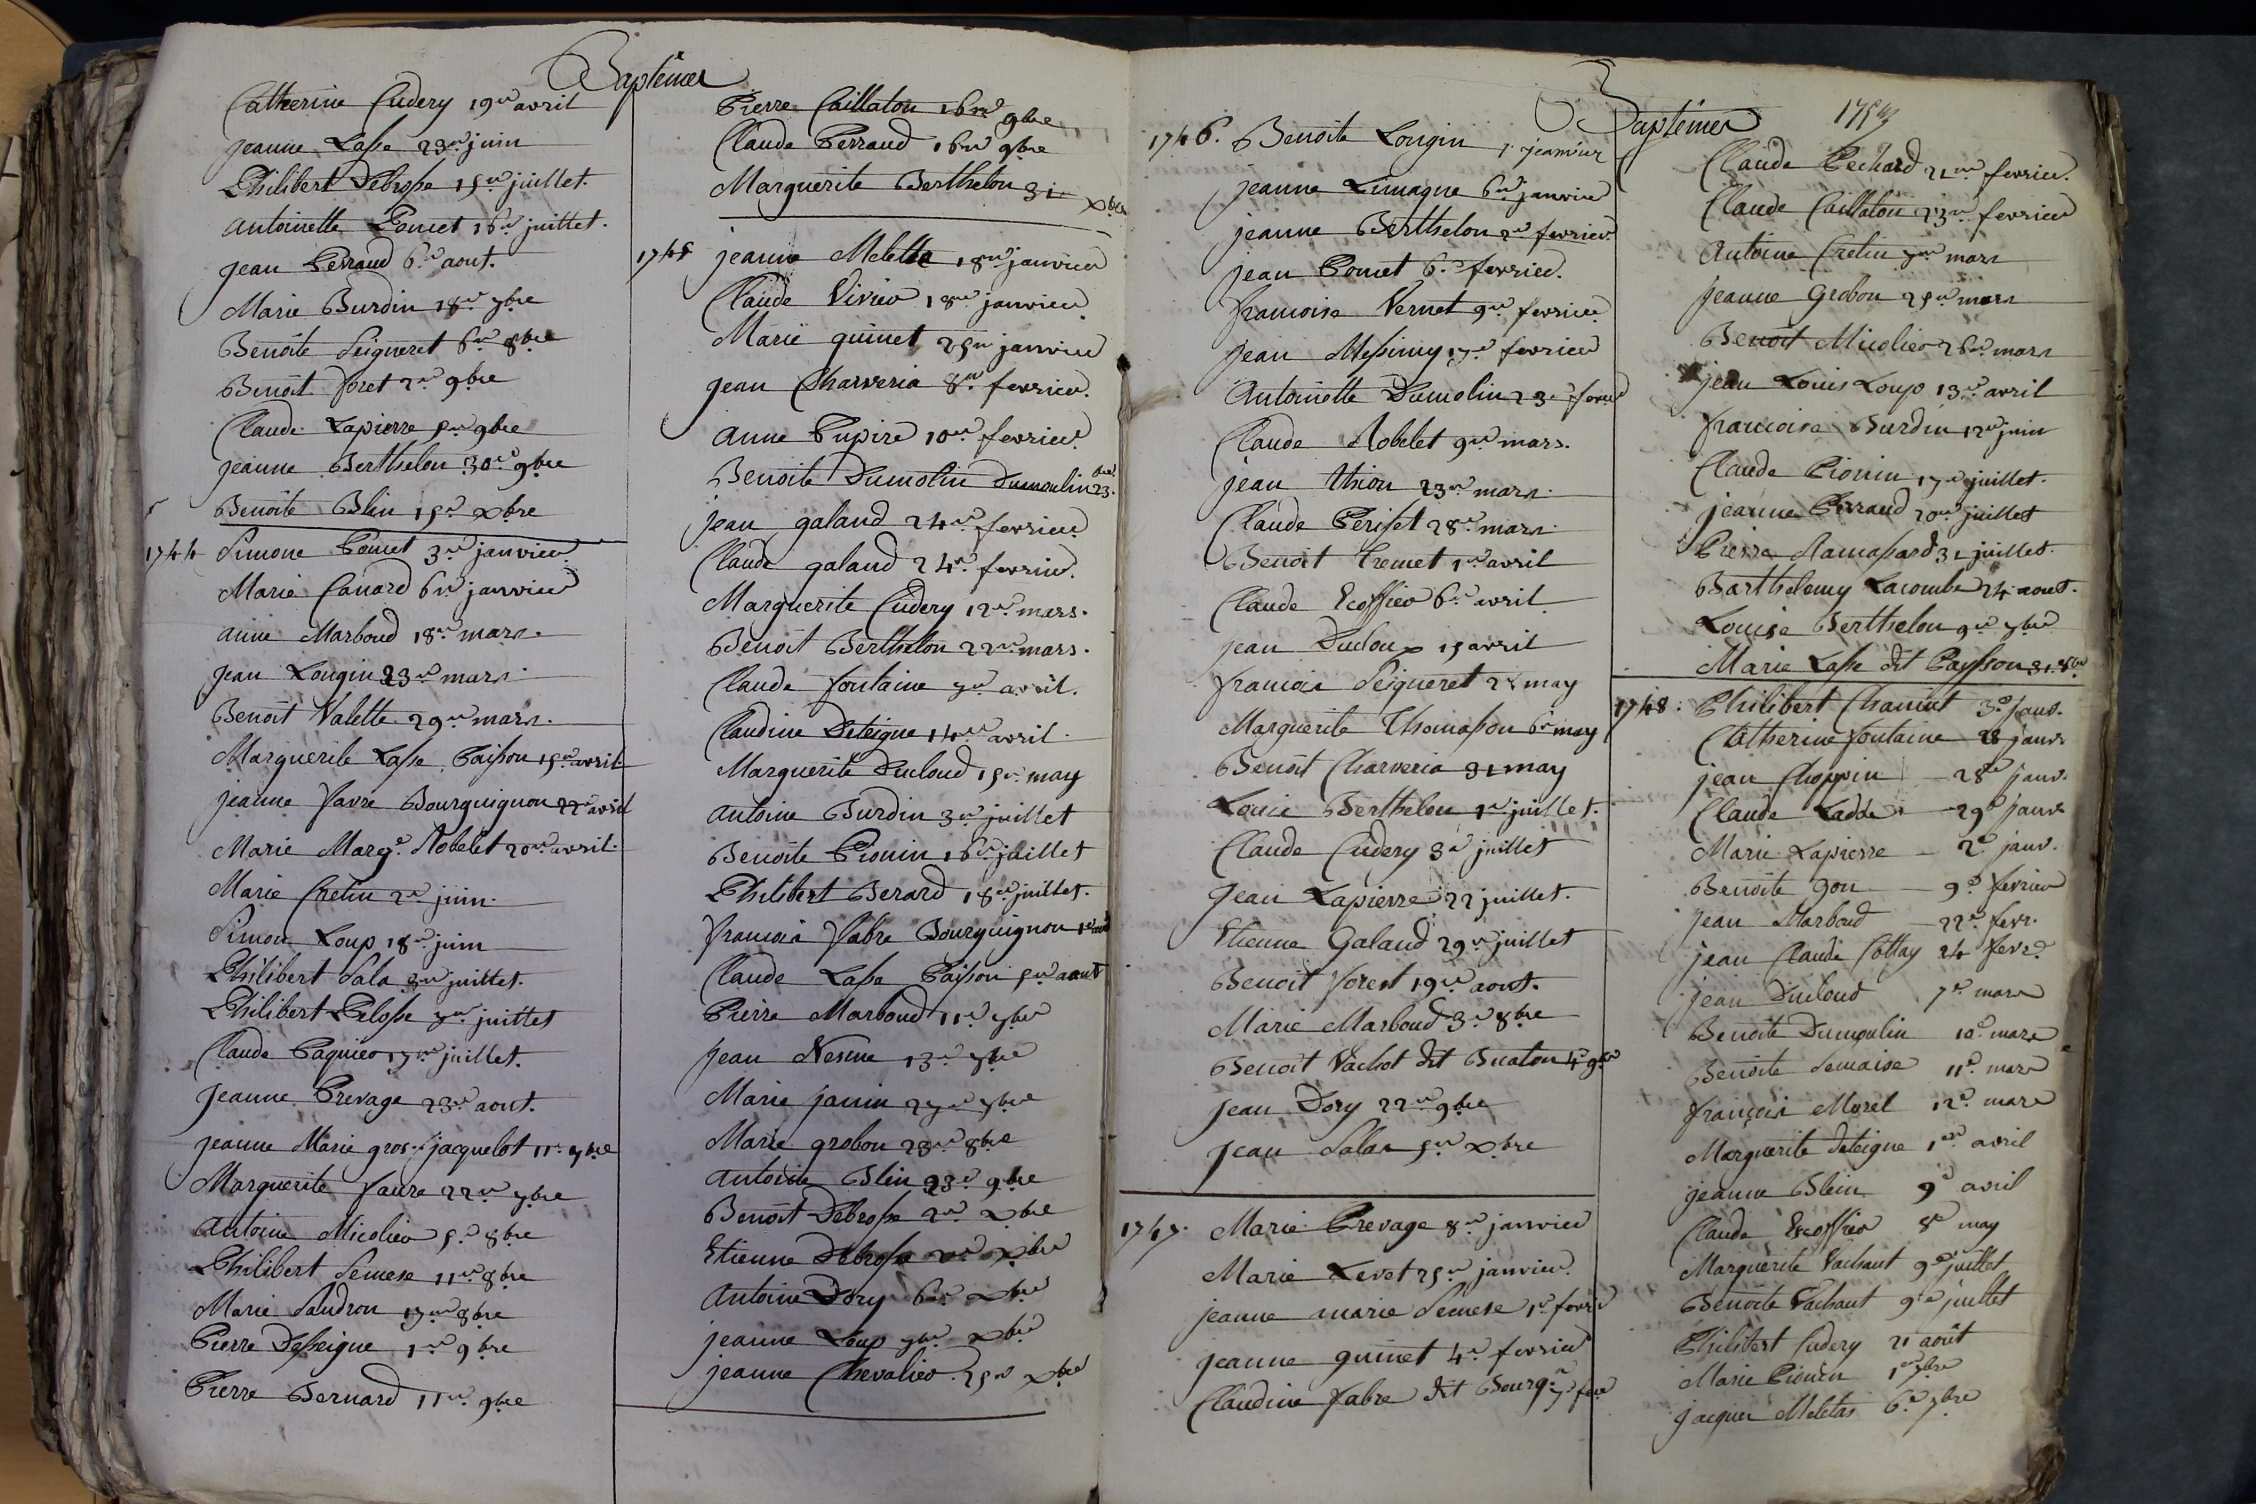 Baptêmes
Catherine Cudery 19e avril
jeanne Lasse 23e juin
Philibert Debrosse 15e juillet.
antoinette Poncet 16e juillet.
jean Perraud 6e aout.
Marie Burdin 18e 7bre
Benoite Seigneret 6e 8bre
Benoit foret 2e 9bre
Claude Lapierre 5e 9bre
jeanne Berthelon 30e 9bre
Benoite Blin 15e Xbre
1744 Simone Poncet 3e janvier
Marie Canard 6e janvier
anne Marboud 18e mars.
jean Longin 23e mars.
Benoit Valette 29e mars.
Marguerite Lasse Paisson 15e avril
jeanne favre Bourguignon 22e avril
Marie Margte Robelet 20e avril.
Marie Cretin 2e juin.
Simon Loup 18e juin
Philibert Sala juillet.
Philibert Pelosse 7e juillet
Claude Paquier 17e juillet.
jeanne Prevage 23e aout.
jeanne Marie gros jacquelot 11e 7bre
Marguerite faure 22e 7bre
antoine Micolier 5e 8bre
Philibert Semese 11e 8bre
Marie Saudron 17e 8bre
Pierre Desseigne 1er 9bre
Pierre Bernard 11e 9bre
Pierre Caillaton 16e 9bre
Claude Perraud 16e 9bre
Marguerite Berthelon 31 Xbre
1745 jeanne Melette 18e janvier
Claude Vivier 18e janvier
Marie guinet 25e janvier
jean Charveria 8e fevrier.
anne Pupire 10e fevrier
Benoite Dumolin Dumoulin 23.
jean galand 24e fevrier
Claude galand 24e fevrier.
Marguerite Cudery 12e mars.
Benoit Berthelon 22e mars.
Claude fontaine 7e avril.
Claudine Deteigne 14e avril.
Marguerite Ducloud 15e may
antoine Burdin 3e juillet
Benoite Pionin 16e juillet
Philibert Berard 18e juillet.
francois fabre Bourguignon 1er aout
Claude Lasse Paisson 5e aout
Pierre Marboud 11e 7bre
jean Nesme 13e 7bre
Marie janin 27e 7bre
Marie grobon 28e 8bre
antoine Blin 23e 9bre
Benoit Debrosse 2e Xbre
Etienne Debrosse 2e Xbre
antoine Dory 6e Xbre
jeanne Loup 7e Xbre
jeanne Chevalier 25e Xbre
Baptêmes
1746. Benoite Longin 1 janvier
jeanne Limagne 6e janvier
jeanne Berthelon 2e fevrier
jean Poncet 6e fevrier.
francoise Vernet 9e fevrier
jean Messimy 17e fevrier
antoinette Dumolin 23e fevrier
Claude Robelet 9e mars.
jean thion 23e mars.
Claude Perisset 28e mars.
Benoit tremet 1er avril
Claude Ecoffier 6e avril
jean Ducloux 15 avril
francois Seigneret may
Marguerite Thomasson 6e may
Benoit Charveria 31 may
Louise Berthelon 1er juillet.
Claude Cudery 3e juillet
Jean Lapierre 22 juillet.
Etienne Galand 29e juillet
Benoit foret 19e aout.
Marie Marboud 3e 8bre
Benoit Vachot dit Buaton 4e 9bre
jean Dory 22e 9bre
jean Salas 5e Xbre
1747. Marie Prevage 8e janvier
Marie Levet 25e janvier.
jeanne marie Semese 1er fevrier
jeanne guinet 4e fevrier
Claudine fabre dit Bourgn 7e fevr
Claude Pechard 21e fevrier.
Claude Caillaton 23e fevrier
antoine Cretin 7e mars
jeanne Grobon 25e mars
Benoit Micolier 28e mars
jean Louis Loup 13e avril
francoise Burdin 12e juin
Claude Pionin 17e juillet.
jeanne Perraud 20e juillet
Pierre Ramassard 31 juillet.
Barthelemy Lacombe 24 aout.
Louise Berthelon 9e 7bre
Marie Lasse dit Paysson 31 8bre
1748. Philibert Chaninet 3e janv.
Catherine fontaine 28 janv
jean Choppin 28e janv.
Claude Ladde 29e janv
Marie Lapierre 2e janv.
Benoite gon 9e fevrier
jean Marboud 22e fevr.
jean Claude Cottay 24 fevr.
jean Ducloud 7e mars
Benoite Dumoulin 10e mars
Benoite Semaise 11e mars
françois Morel 12e mars
Marguerite deteigne 1er avril
jeanne Blein 9e avril
Claude Ecoffier 8e may
Marguerite Vachaut 9e juillet
Benoite Vachaut 9e juillet
Philibert Cudery 21 août
Marie Pionin 1er 7bre
jacques Meletas 6e 7bre